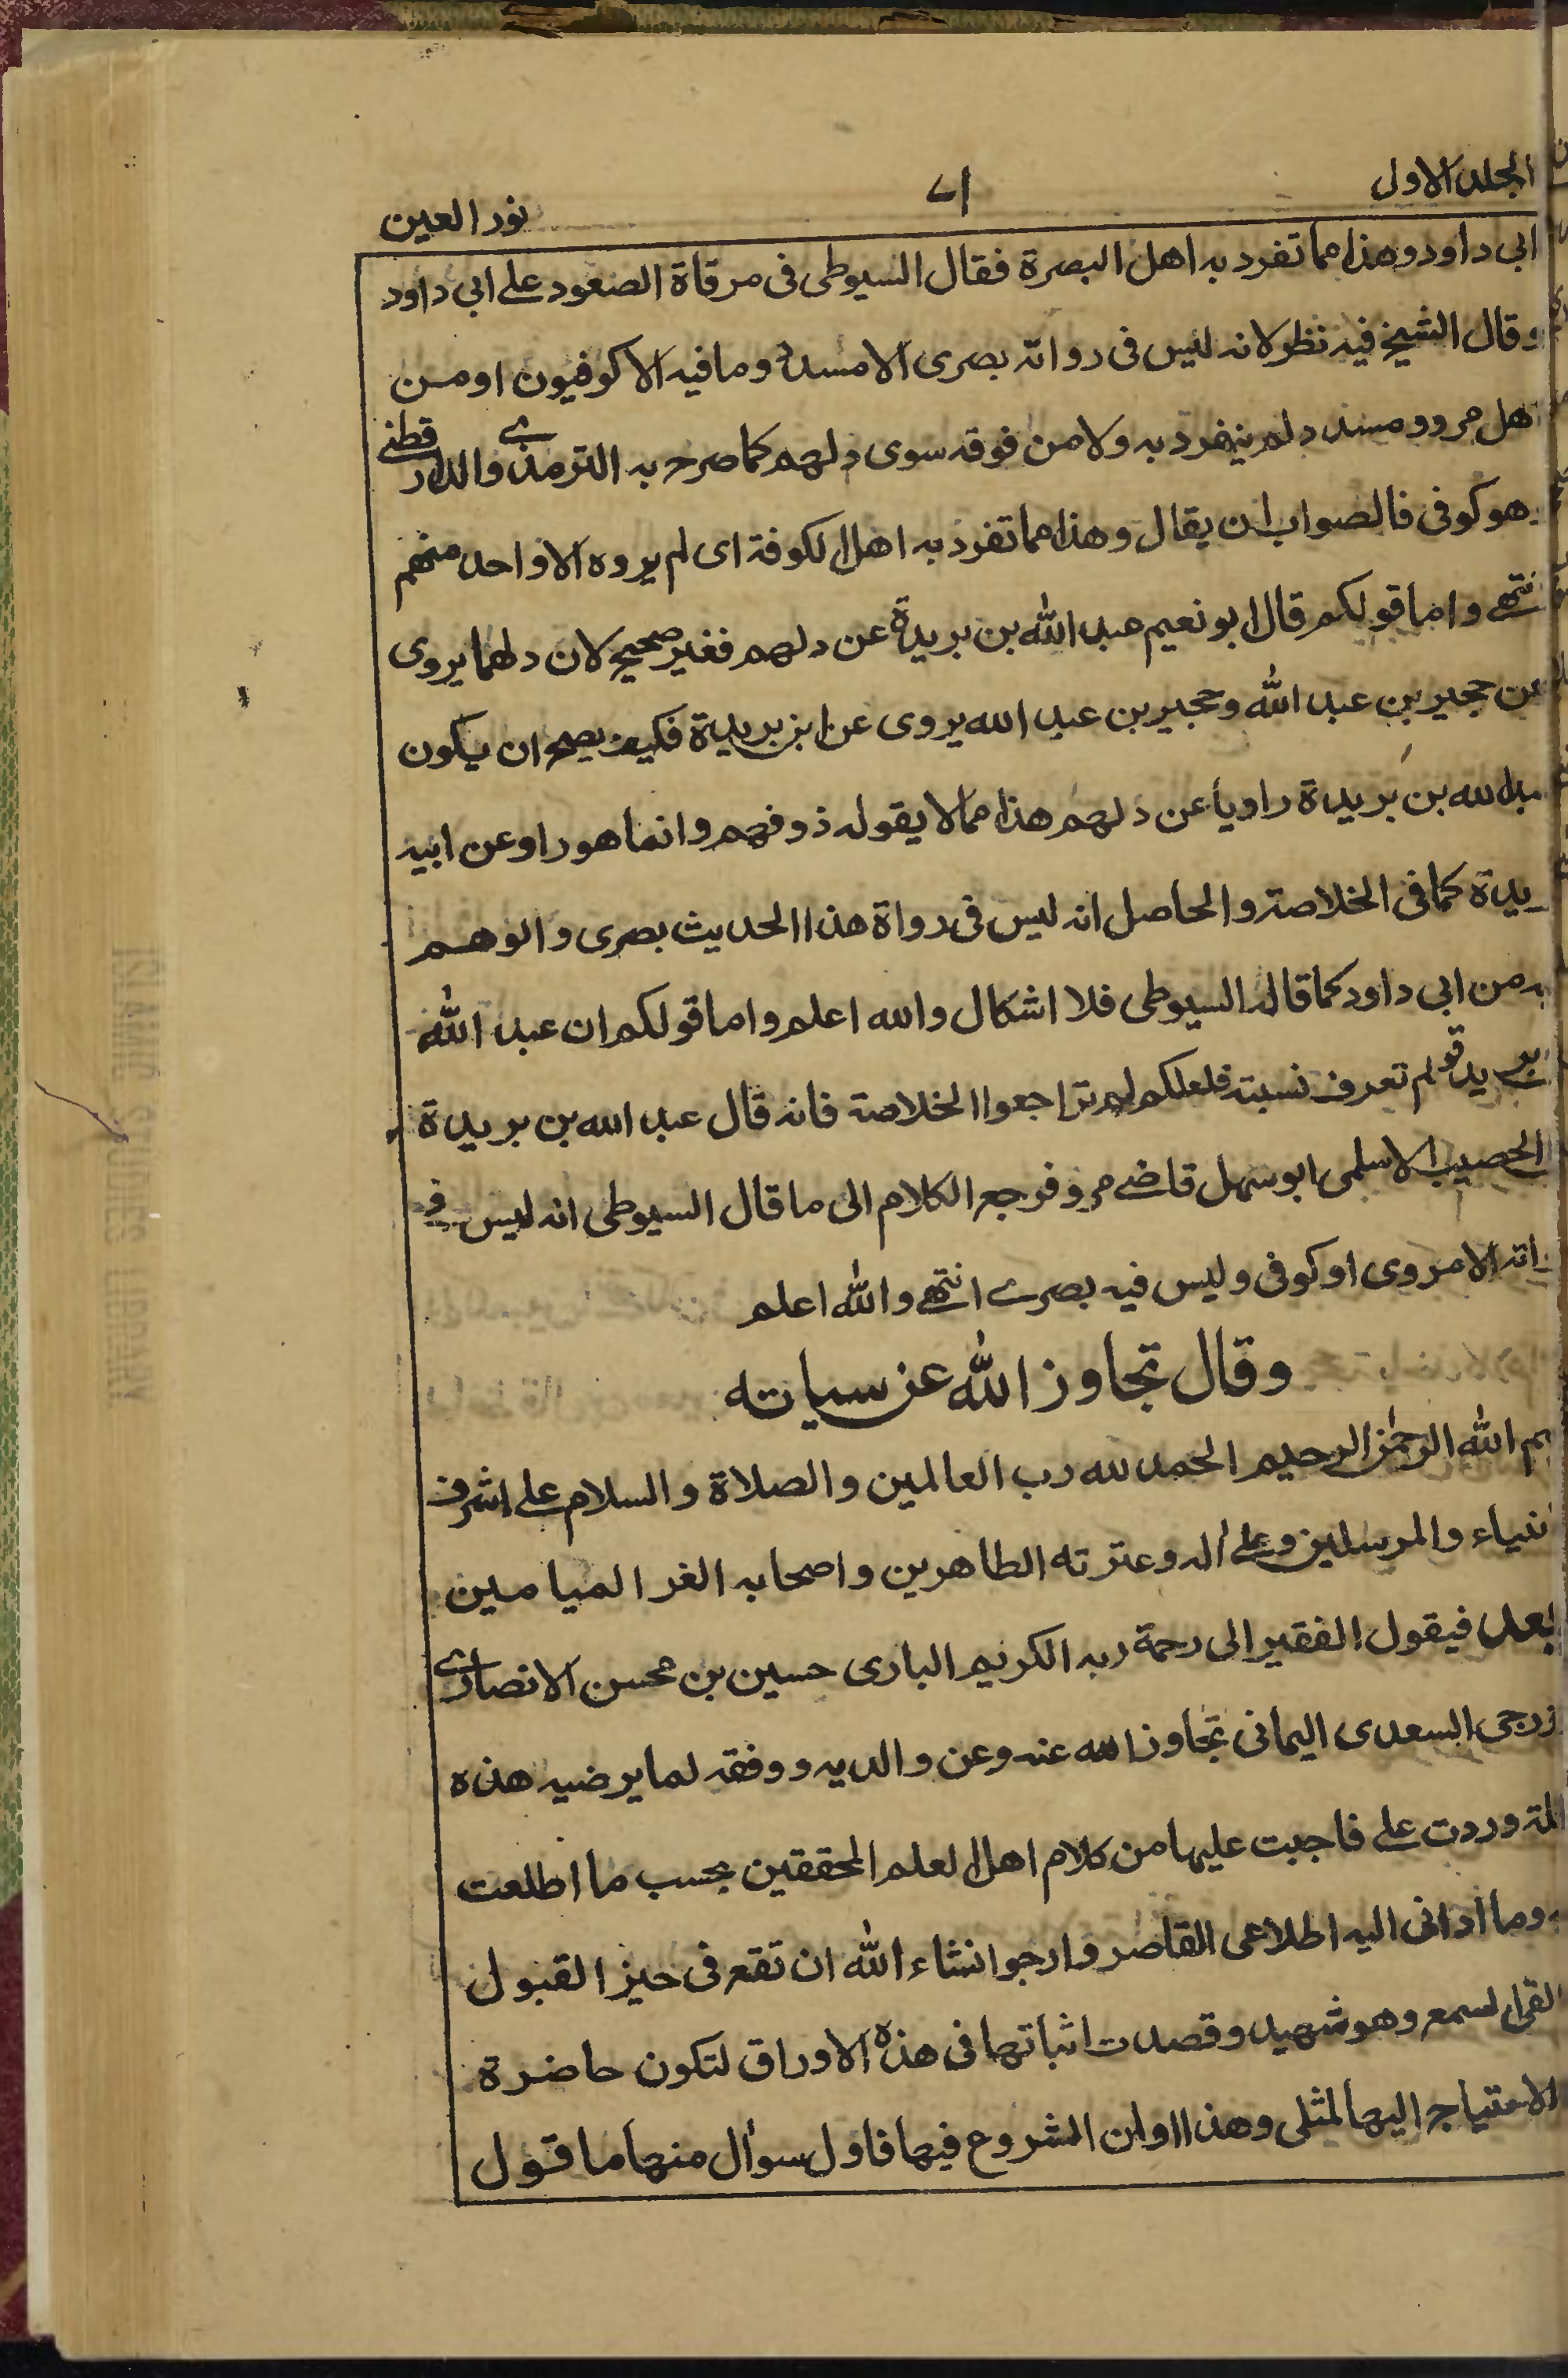 المجلد الاول
٧١
نور العين
ابى داود وهذا مما تفرد به اهل البصرة فقال السيوطى فى مرقاة الصعود على ابى داود
وقال الشيخ فيه نظر لانه ليس فى رواته بصرى الا مسدد وما فيه الا كوفيون او من
هل مرو ومسدد لم ينفرد به ولا من فوقه سوى دلهم كما صرح به الترمذى والدارقطنے
هو كوفى فالصواب ان يقال وهذا مما تفرد به اهل الكوفة اى لم يروه الا واحد منهم
نتهے واما قولكم قال ابو نعيم عبد الله بن بريدة عن دلهم فغير صحيح لان دلهما يروى
عن حجير بن عبد الله وحجير بن عبد الله يروى عن ابن بريدة فكيف يصح ان يكون
بد الله بن بريدة راويا عن دلهم هذا مما لا يقوله ذو فهم وانما هو راو عن ابيه
يدة كما فى الخلاصة والحاصل انه ليس فى رواة هذا الحديث بصرى والوهم
يه من ابى داود كما قاله السيوطى فلا اشكال والله اعلم واما قولكم ان عبد الله
بريدة لم تعرف نسبته فلعلكم لم تراجعوا الخلاصة فانه قال عبد الله بن بريدة
الحصيب الاسلمى ابو سهل قاضے مرو فرجع الكلام الى ما قال السيوطى انه ليس فى
اته الا مروى او كوفى وليس فيه بصرے انتهے والله اعلم
وقال تجاوز الله عن سياته
م الله الرحمن الرحيم الحمد لله رب العالمين والصلاة والسلام على اشرف
نبياء والمرسلين وعلى اله وعترته الطاهرين واصحابه الغر الميامين
بعد فيقول الفقير الى رحمة ربه الكريم البارى حسين بن محسن الانصارے
زرجى السعدى اليمانى تجاوز الله عنه وعن والديه ووفقه لما يرضيه هذه
لة وردت على فاجبت عليها من كلام اهل العلم المحققين بحسب ما اطلعت
وما ادانى اليه اطلاعى القاصر وارجو انشاء الله ان تقع فى حيز القبول
القى السمع وهو شهيد وقصدت اثباتها فى هذه الاوراق لتكون حاضرة
الاحتياج اليها لمثلى وهذا اوان الشروع فيها فاول سوأل منها ما قول